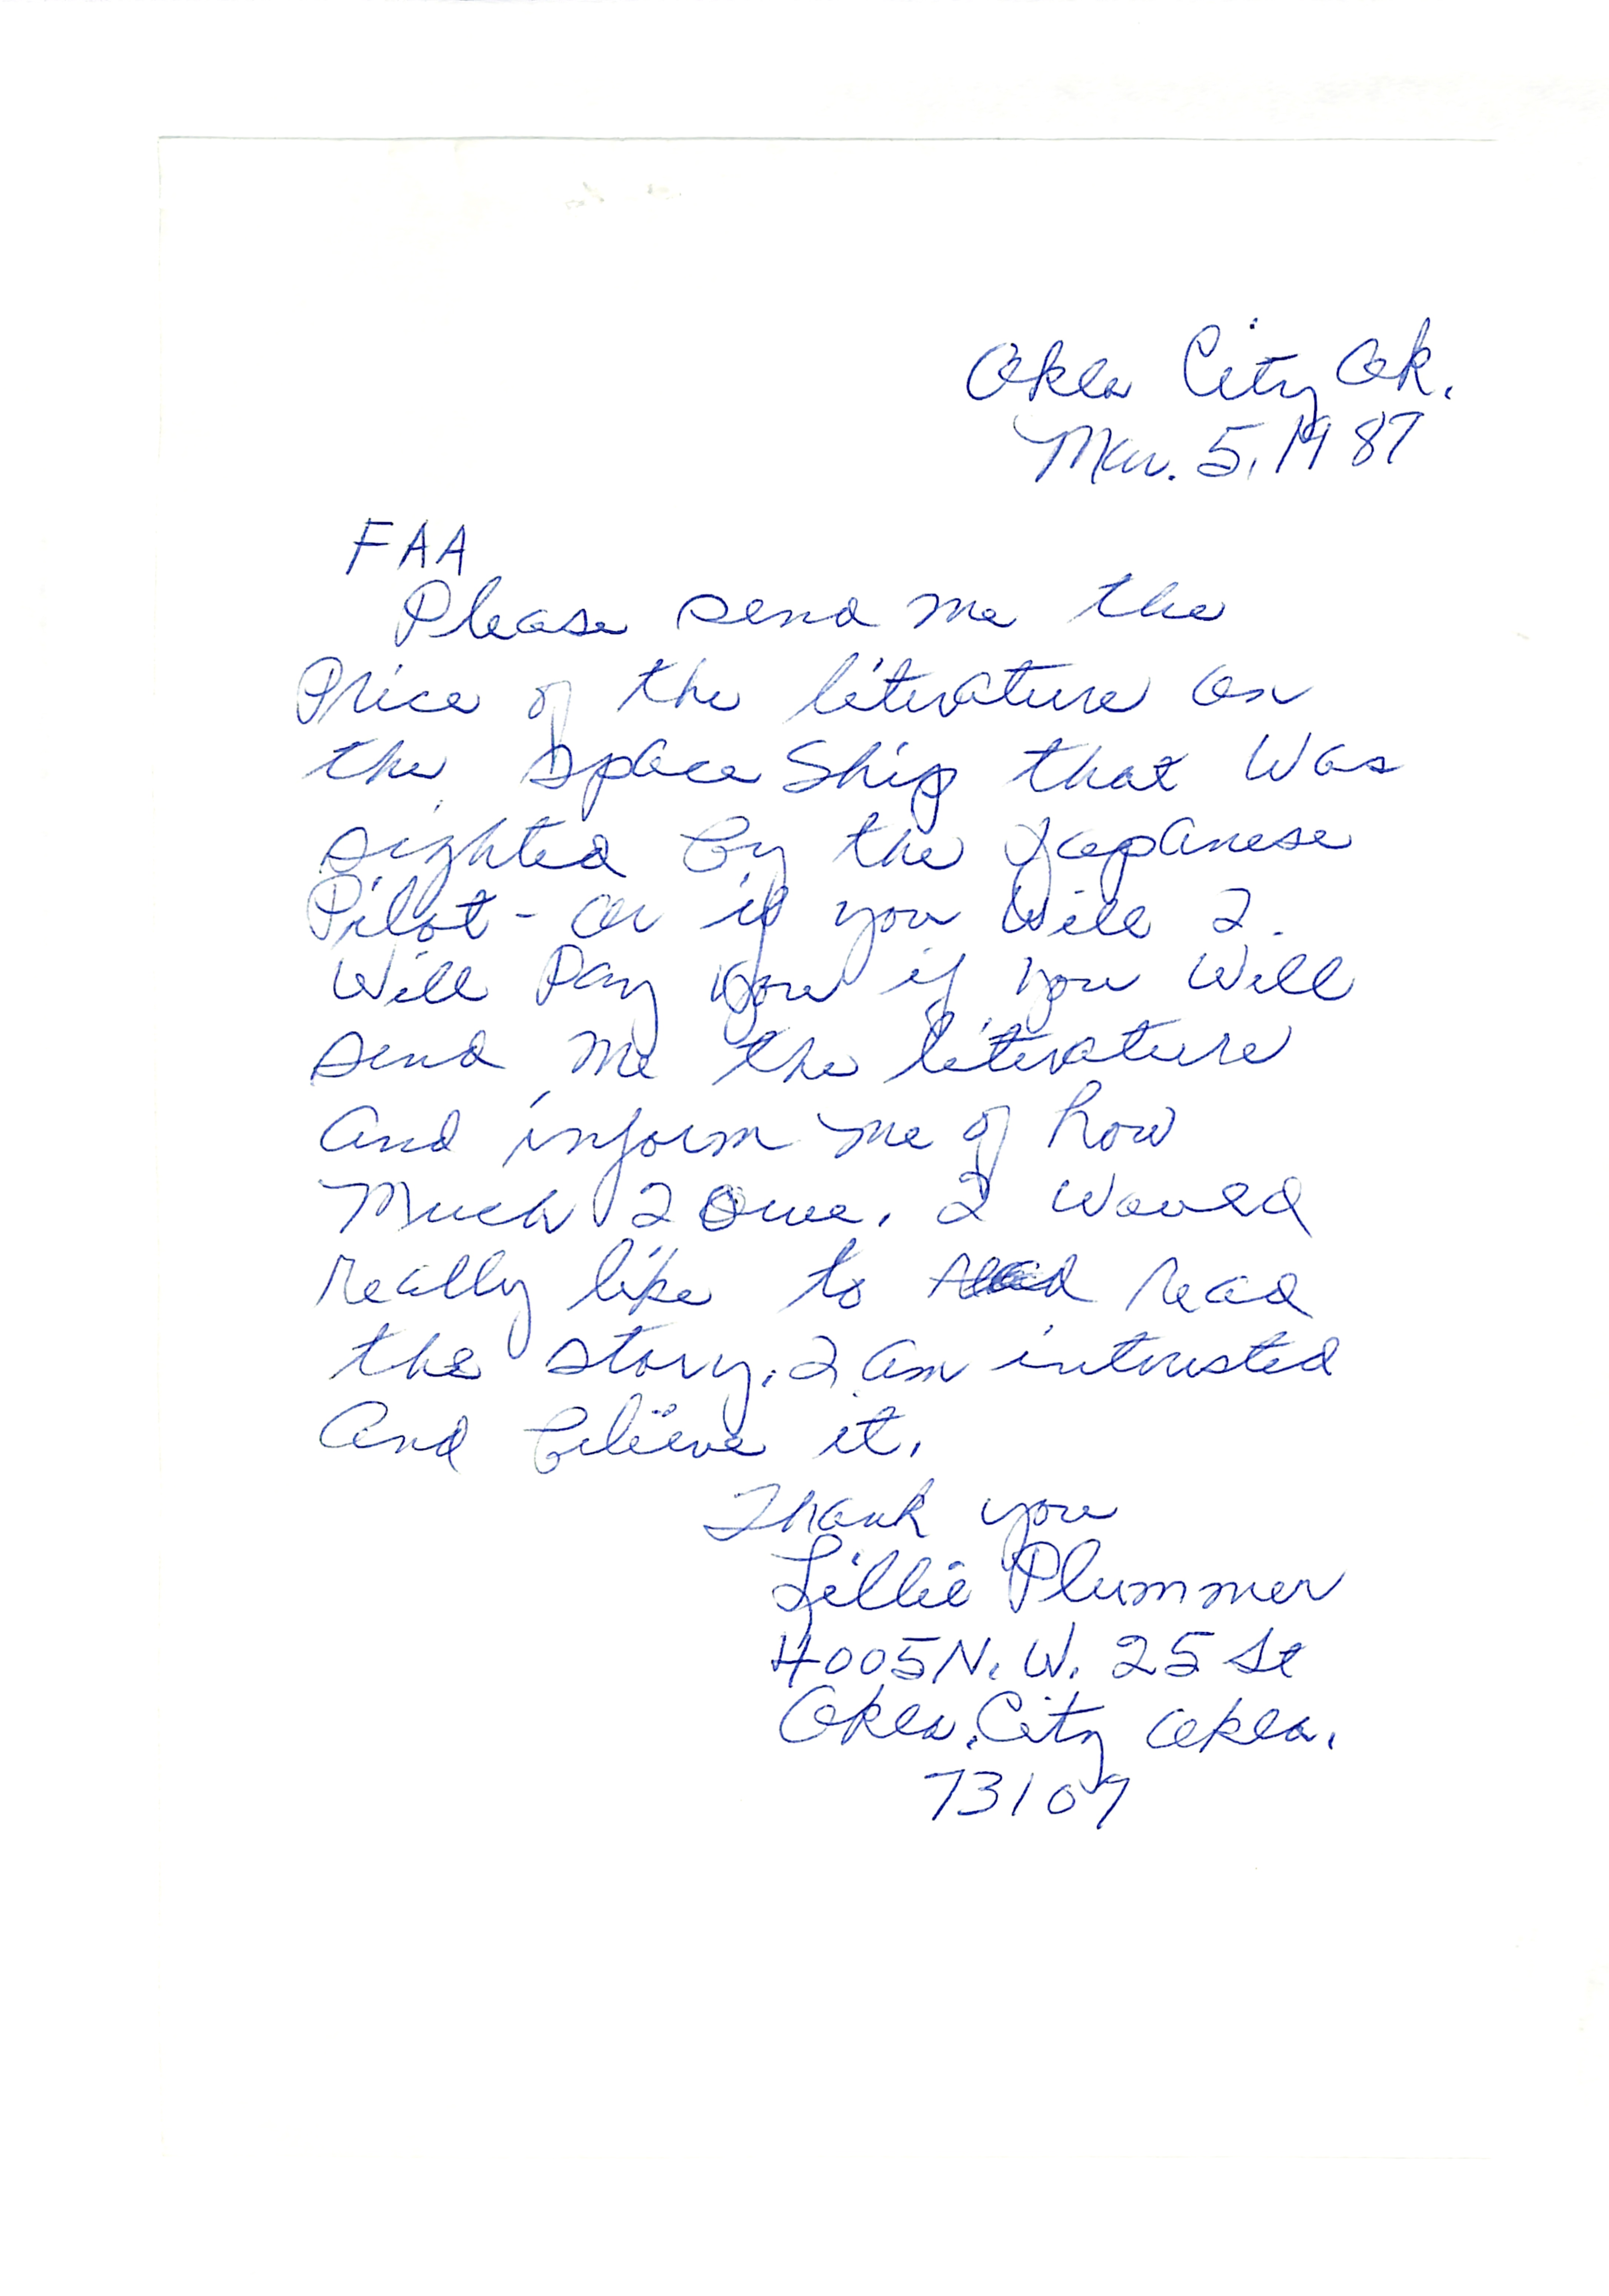 Okla City Ok.
Mar. 5, 1987
FAA
Please send me the
Price of the literature on
the Space Ship that Was
sighted by the Japanese
Pilot - or if you Will I
Will Pay you if you Will
send me the literature
and inform me of how
Much I Owe. I Would
really like to read
the story. I am intrusted
and believe it.
Thank you
Lillie Plummer
4005 N. W. 25 St
Okla. City Okla.
73107